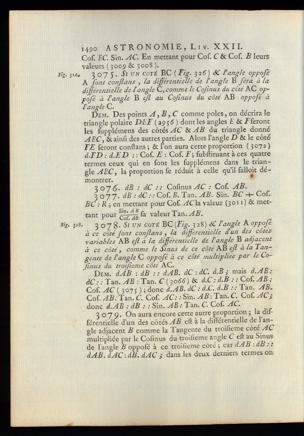 1490 ASTRONOMIE, LIV. XXII.
Cos. BC. Sin. AC. En mettant pour Cos. C & Cos. B leurs
valeurs (3009 & 3008).
3075. SI UN COTÉ BC (Fig. 326) & l'angle opposé
A sont constans, la différentielle de l'angle B sera à la
différentielle de l'angle C, comme le Cosinus du côté AC op-
posé à l'angle B est au Cosinus du côté AB opposé à
l'angle C.
DEM. Des points A, B, C comme poles, on décrira le
triangle polaire DEF (2956) dont les angles E & F seront
les supplémens des côtés AC & AB du triangle donné
AEC, & ainsi des autres parties. Alors l'angle D & le côté
FE seront constans; & l'on aura cette proportion (3072)
d.FD : d.ED :: Cos. E : Cos. F; substituant à ces quatre
termes ceux qui en sont les supplémens dans le trian-
gle AEC, la proportion se réduit à celle qu'il falloit dé-
montrer.
3076. dB : dC :: Cosinus AC : Cos. AB.
3077. dB : dC :: Cos. B. Tan. AB. Sin. BC + Cos.
BC : R; en mettant pour Cos. AC la valeur (3011) & met-
tant pour Sin. AB / Cos. AB sa valeur Tan. AB.
3078. SI UN COTÉ BC (Fig. 328) & l'angle A opposé
à ce côté sont constans, la différentielle d'un des côtés
variables AB est à la différentielle de l'angle B adjacent
à ce côté, comme le Sinus de ce côté AB est à la Tan-
gente de l'angle C opposé à ce côté multipliée par le Co-
sinus du troisième côté AC.
DEM. dAB : dB :: dAB. dC : dC. dB; mais dAB :
dC :: Tan. AB : Tan. C (3066) & dC : dB :: Cos. AB :
Cos. AC (3075); donc dAB. dC : dC. dB :: Tan. AB.
Cos. AB : Tan. C. Cos. AC :: Sin. AB : Tan. C. Cos. AC;
donc dAB : dB :: Sin. AB : Tan. C. Cos. AC.
3079. On aura encore cette autre proportion; la dif-
férentielle d'un des côtés AB est à la différentielle de l'an-
gle adjacent B comme la Tangente du troisieme côté AC
multipliée par le Cosinus du troisieme angle C est au Sinus
de l'angle B opposé à ce troisieme côté; car dAB : dB ::
dAB. dAC : dB. dAC; dans les deux derniers termes on
Fig. 326.
Fig. 328.